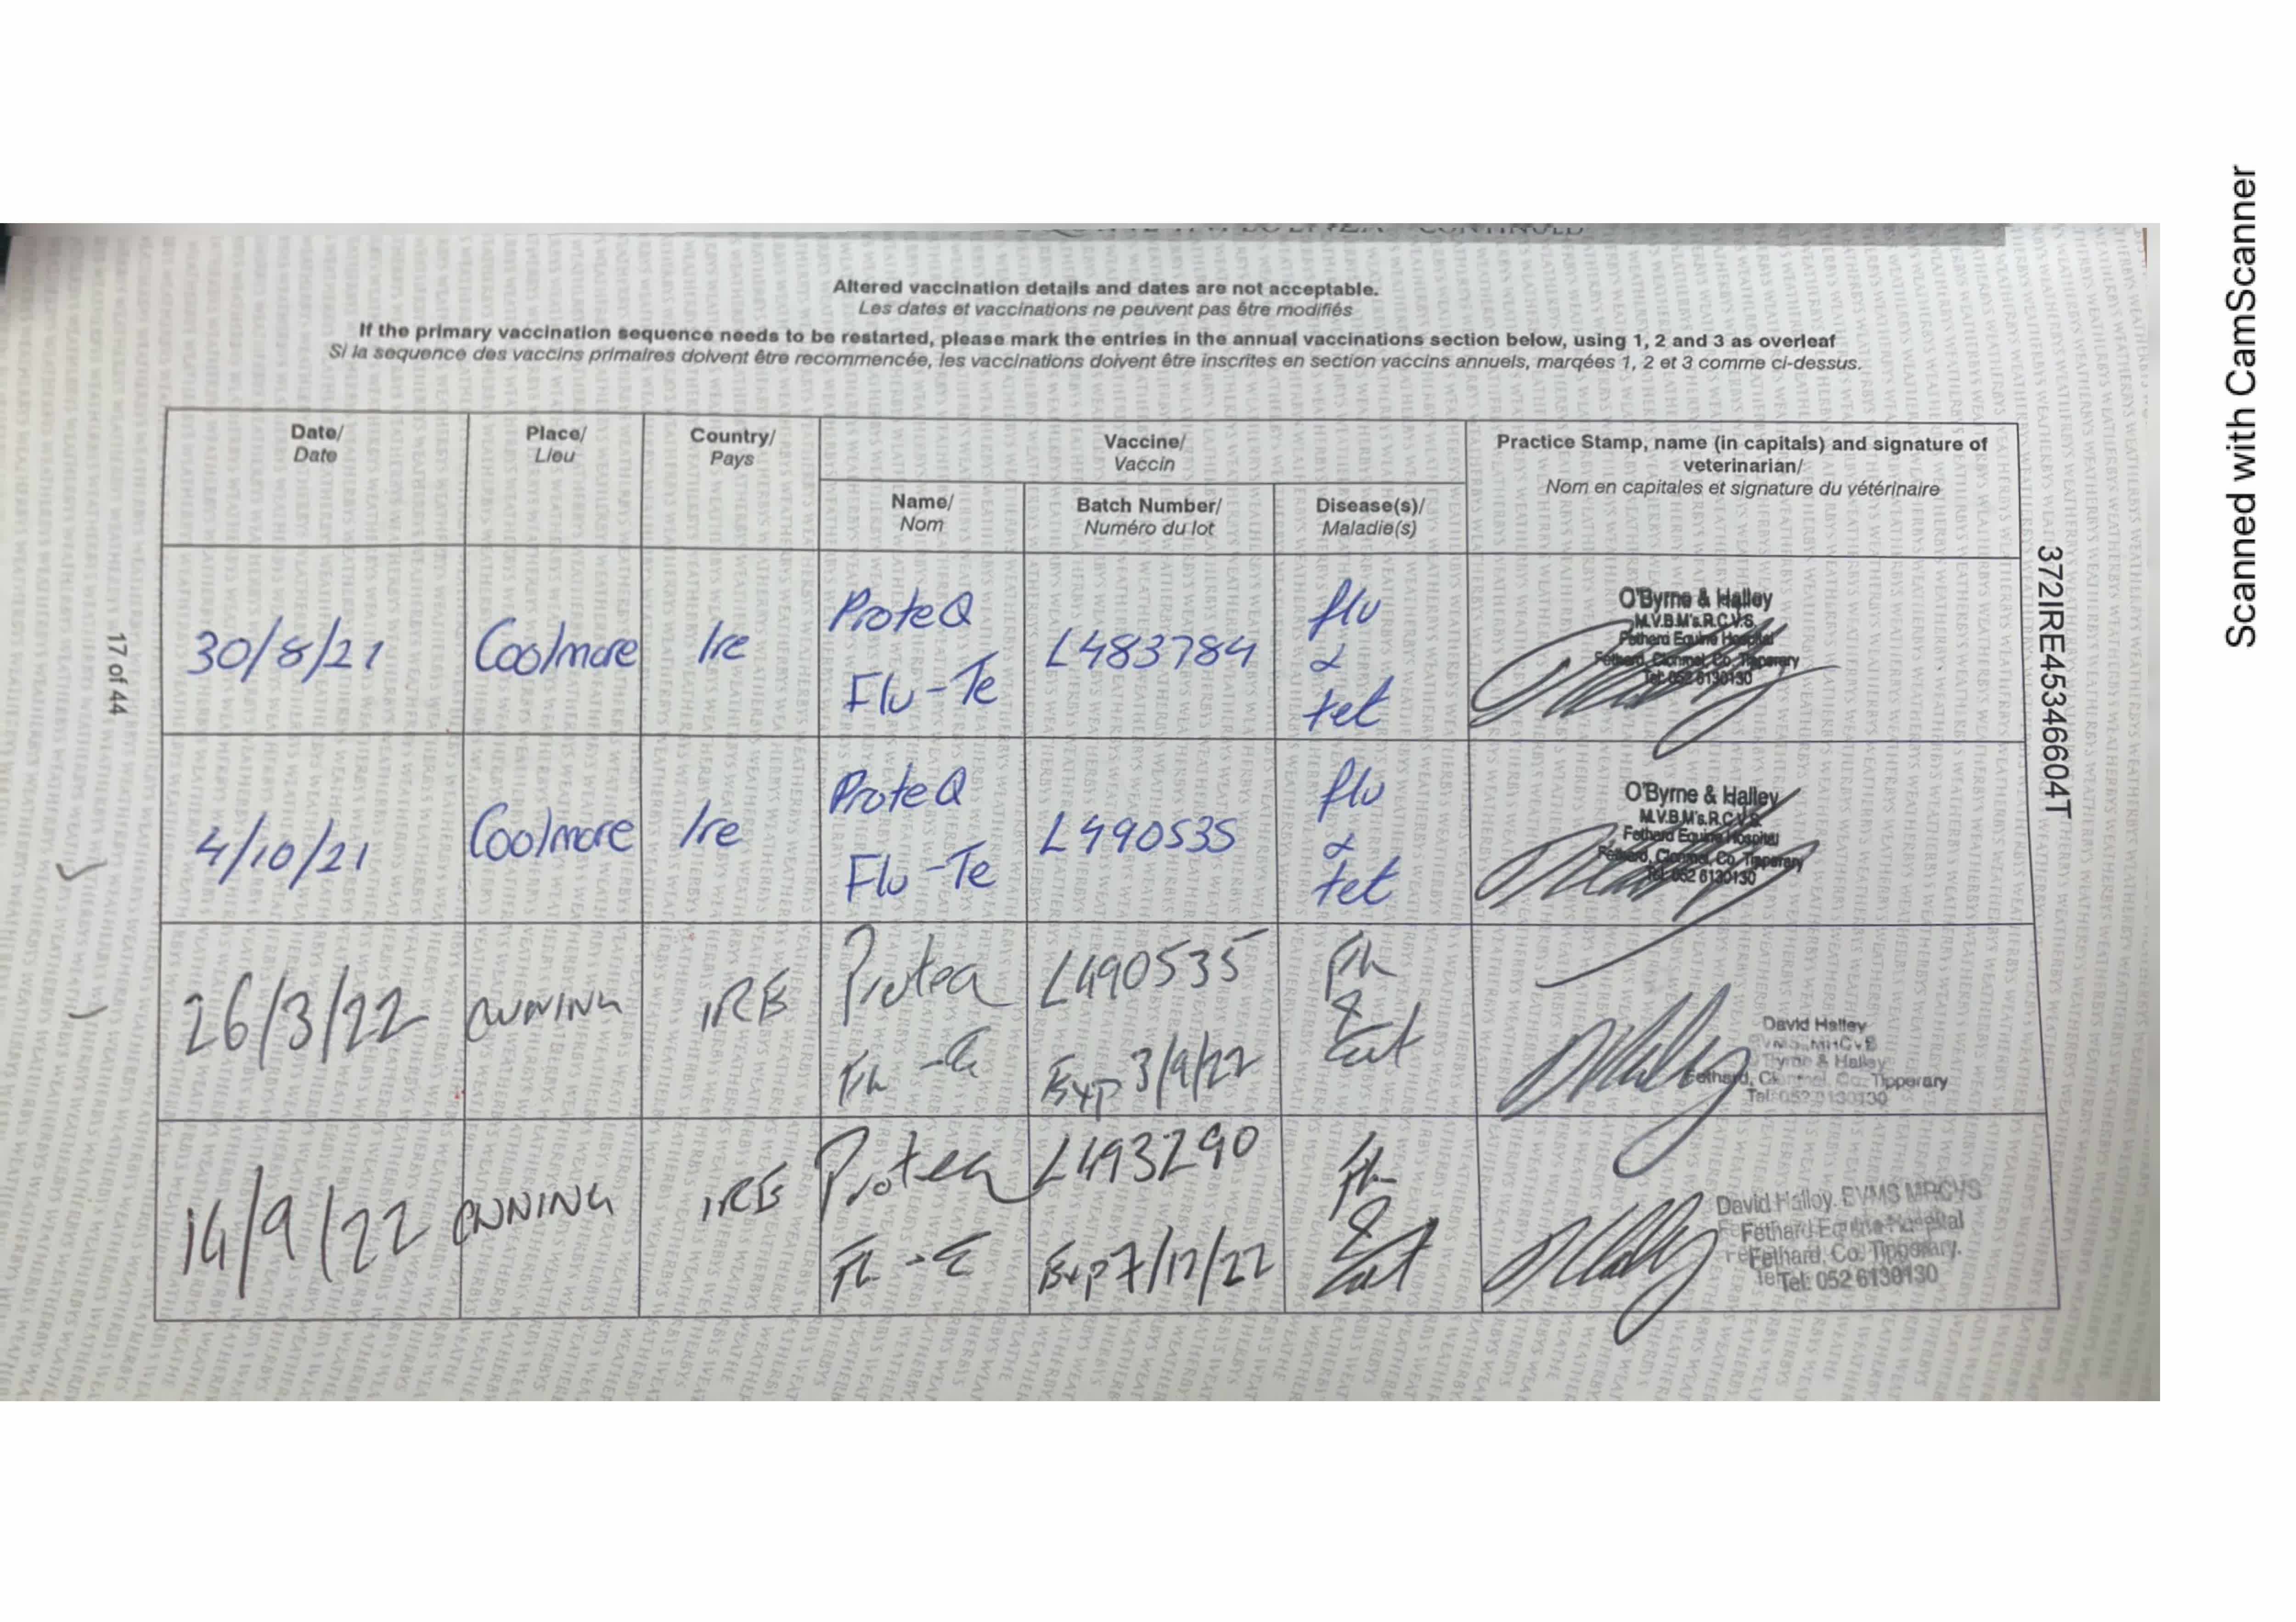 Altered vaccination details and dates are not acceptable.
Les dates et vaccinations ne peuvent pas être modifiés
If the primary vaccination sequence needs to be restarted, please mark the entries in the annual vaccinations section below, using 1, 2 and 3 as overleaf
Si la sequence des vaccins primaires doivent être recommencée, les vaccinations doivent être inscrites en section vaccins annuels, marqées 1, 2 et 3 comme ci-dessus.
Date/
Date
Place/
Lieu
Country/
Pays
Vaccine/
Vaccin
Name/
Nom
Batch Number/
Numéro du lot
Disease(s)/
Maladie(s)
Practice Stamp, name (in capitals) and signature of
veterinarian/
Nom en capitales et signature du vétérinaire
30/8/21
Coolmore
Ire
ProteQ
Flu-Te
L483784
flu
&
tet
O'Byrne & Halley
M.V.B.M's.R.C.V.S.
Fethard Equine Hospital
Fethard, Clonmel, Co. Tipperary
Tel: 052 6130130
4/10/21
Coolmore
Ire
ProteQ
Flu-Te
L490535
flu
&
tet
O'Byrne & Halley
M.V.B.M's.R.C.V.S.
Fethard Equine Hospital
Fethard, Clonmel, Co. Tipperary
Tel: 052 6130130
26/3/22
IRE
L490535
Exp 3/9/22
&
David Halley
& Halley
Fethard, Clonmel, Co. Tipperary
Tel: 052 6130130
14/9/22
IRE
L493290
Exp 7/12/22
&
David Halley. BVMS MRCVS
Fethard Equine Hospital
Fethard, Co. Tipperary.
Tel: 052 6130130
17 of 44
372IRE45346604T
Scanned with CamScanner